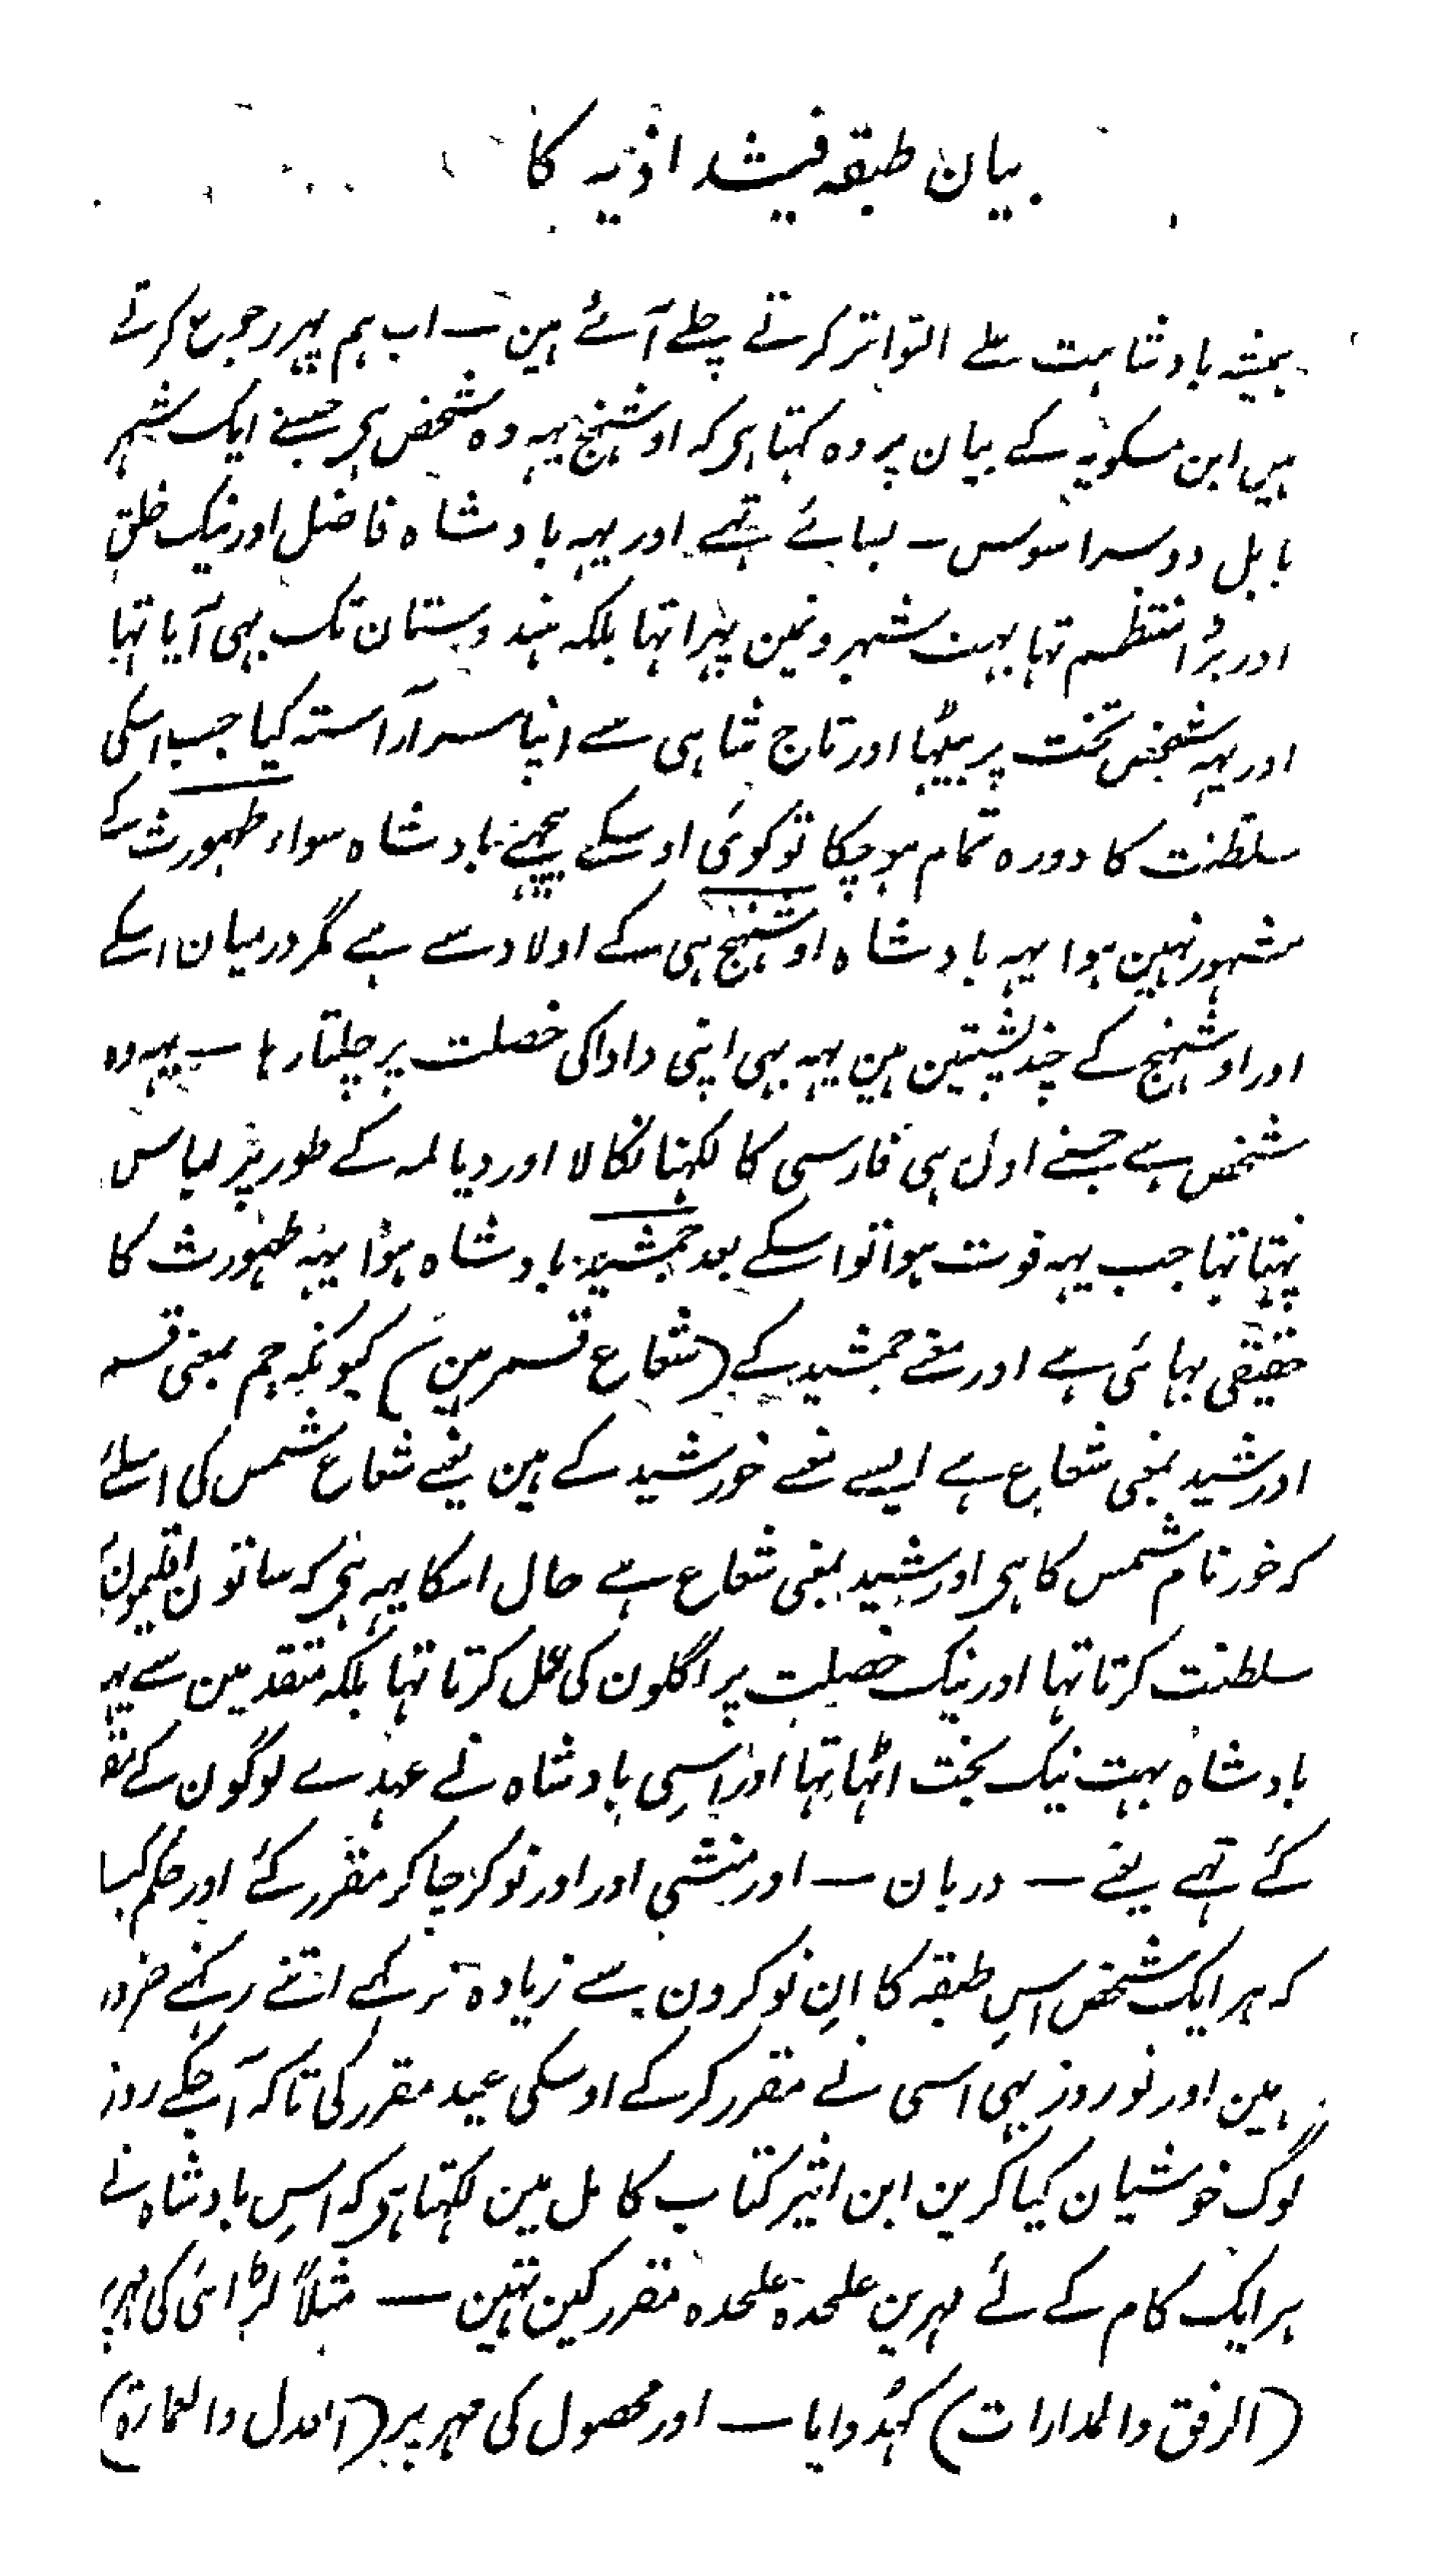 بیان طبقہ فیشدادیہ کا
ہمیشہ بادشاہت علے التواتر کرتے چلے آئے ہین ــ اب ہم پہر رجوع کرتے
ہیں ابن مسکویہ کے بیان پر وہ کہتا ہی کہ اوشنہج یہہ وہ شخص ہی جسنے ایک شہر
بابل دوسرا سوس ــ بسائے تہے اور یہہ بادشاہ فاضل اور نیک خلق
اور بڑا منتظم تہا بہت شہرونمین پہرا تہا بلکہ ہندوستان تک بہی آیا تہا
اور یہہ شخص تخت پر بیٹہا اور تاج شاہی سے اپنا سر آراستہ کیا جب اسکی
سلطنت کا دورہ تمام ہو چکا تو کوئی اوسکے پیچہے بادشاہ سواء طہمورث کے
مشہور نہین ہوا یہہ بادشاہ اوشنہج ہی کے اولاد سے ہے مگر درمیان اسکے
اور اوشنہج کے چند پشتین ہین یہہ بہی اپنی دادا کی خصلت پر چلتا رہا ــ یہہ وہ
شخص ہے جسنے اول ہی فارسی کا لکہنا نکالا اور دیالمہ کے طور پر لباس
پہنتا تہا جب یہہ فوت ہوا تو اسکے بعد جمشید بادشاہ ہوا یہہ طہمورث کا
حقیقی بہائی ہے اور معنے جمشید کے (شعاع قمر ہین) کیونکہ جم بمعنی قمر
اور شید بمعنی شعاع ہے ایسے معنے خورشید کے ہین یعنے شعاع شمس کی اسلئے
کہ خور نام شمس کا ہی اور شید بمعنی شعاع ہے حال اسکا یہہ ہی کہ ساتون اقلیمون
سلطنت کرتا تہا اور نیک خصلت پر اگلون کی عمل کرتا تہا بلکہ متقدمین سے یہہ
بادشاہ بہت نیک بخت اٹہا تہا اور اسی بادشاہ نے عہدے لوگون کے مقر
کئے تہے یعنے ــ دربان ــ اور منشی اور اور نوکر چاکر مقرر کئے اور حکم کیا
کہ ہر ایک شخص اس طبقہ کا ان نوکرون سے زیادہ نہ رکہے اتنے رکہنے ضرور
ہین اور نوروز بہی اسی نے مقرر کرکے اوسکی عید مقرر کی تاکہ آجکے روز
لوگ خوشیان کیا کرین ابن اثیر کتاب کامل مین لکہتا ہی کہ اس بادشاہ نے
ہر ایک کام کے لئے مہرین علحدہ علحدہ مقرر کین تہین ــ مثلاً لڑائی کی مہر
(الرفق والمدارات) کہدوایا ــ اور محصول کی مہر پر (العدل والعمارة)